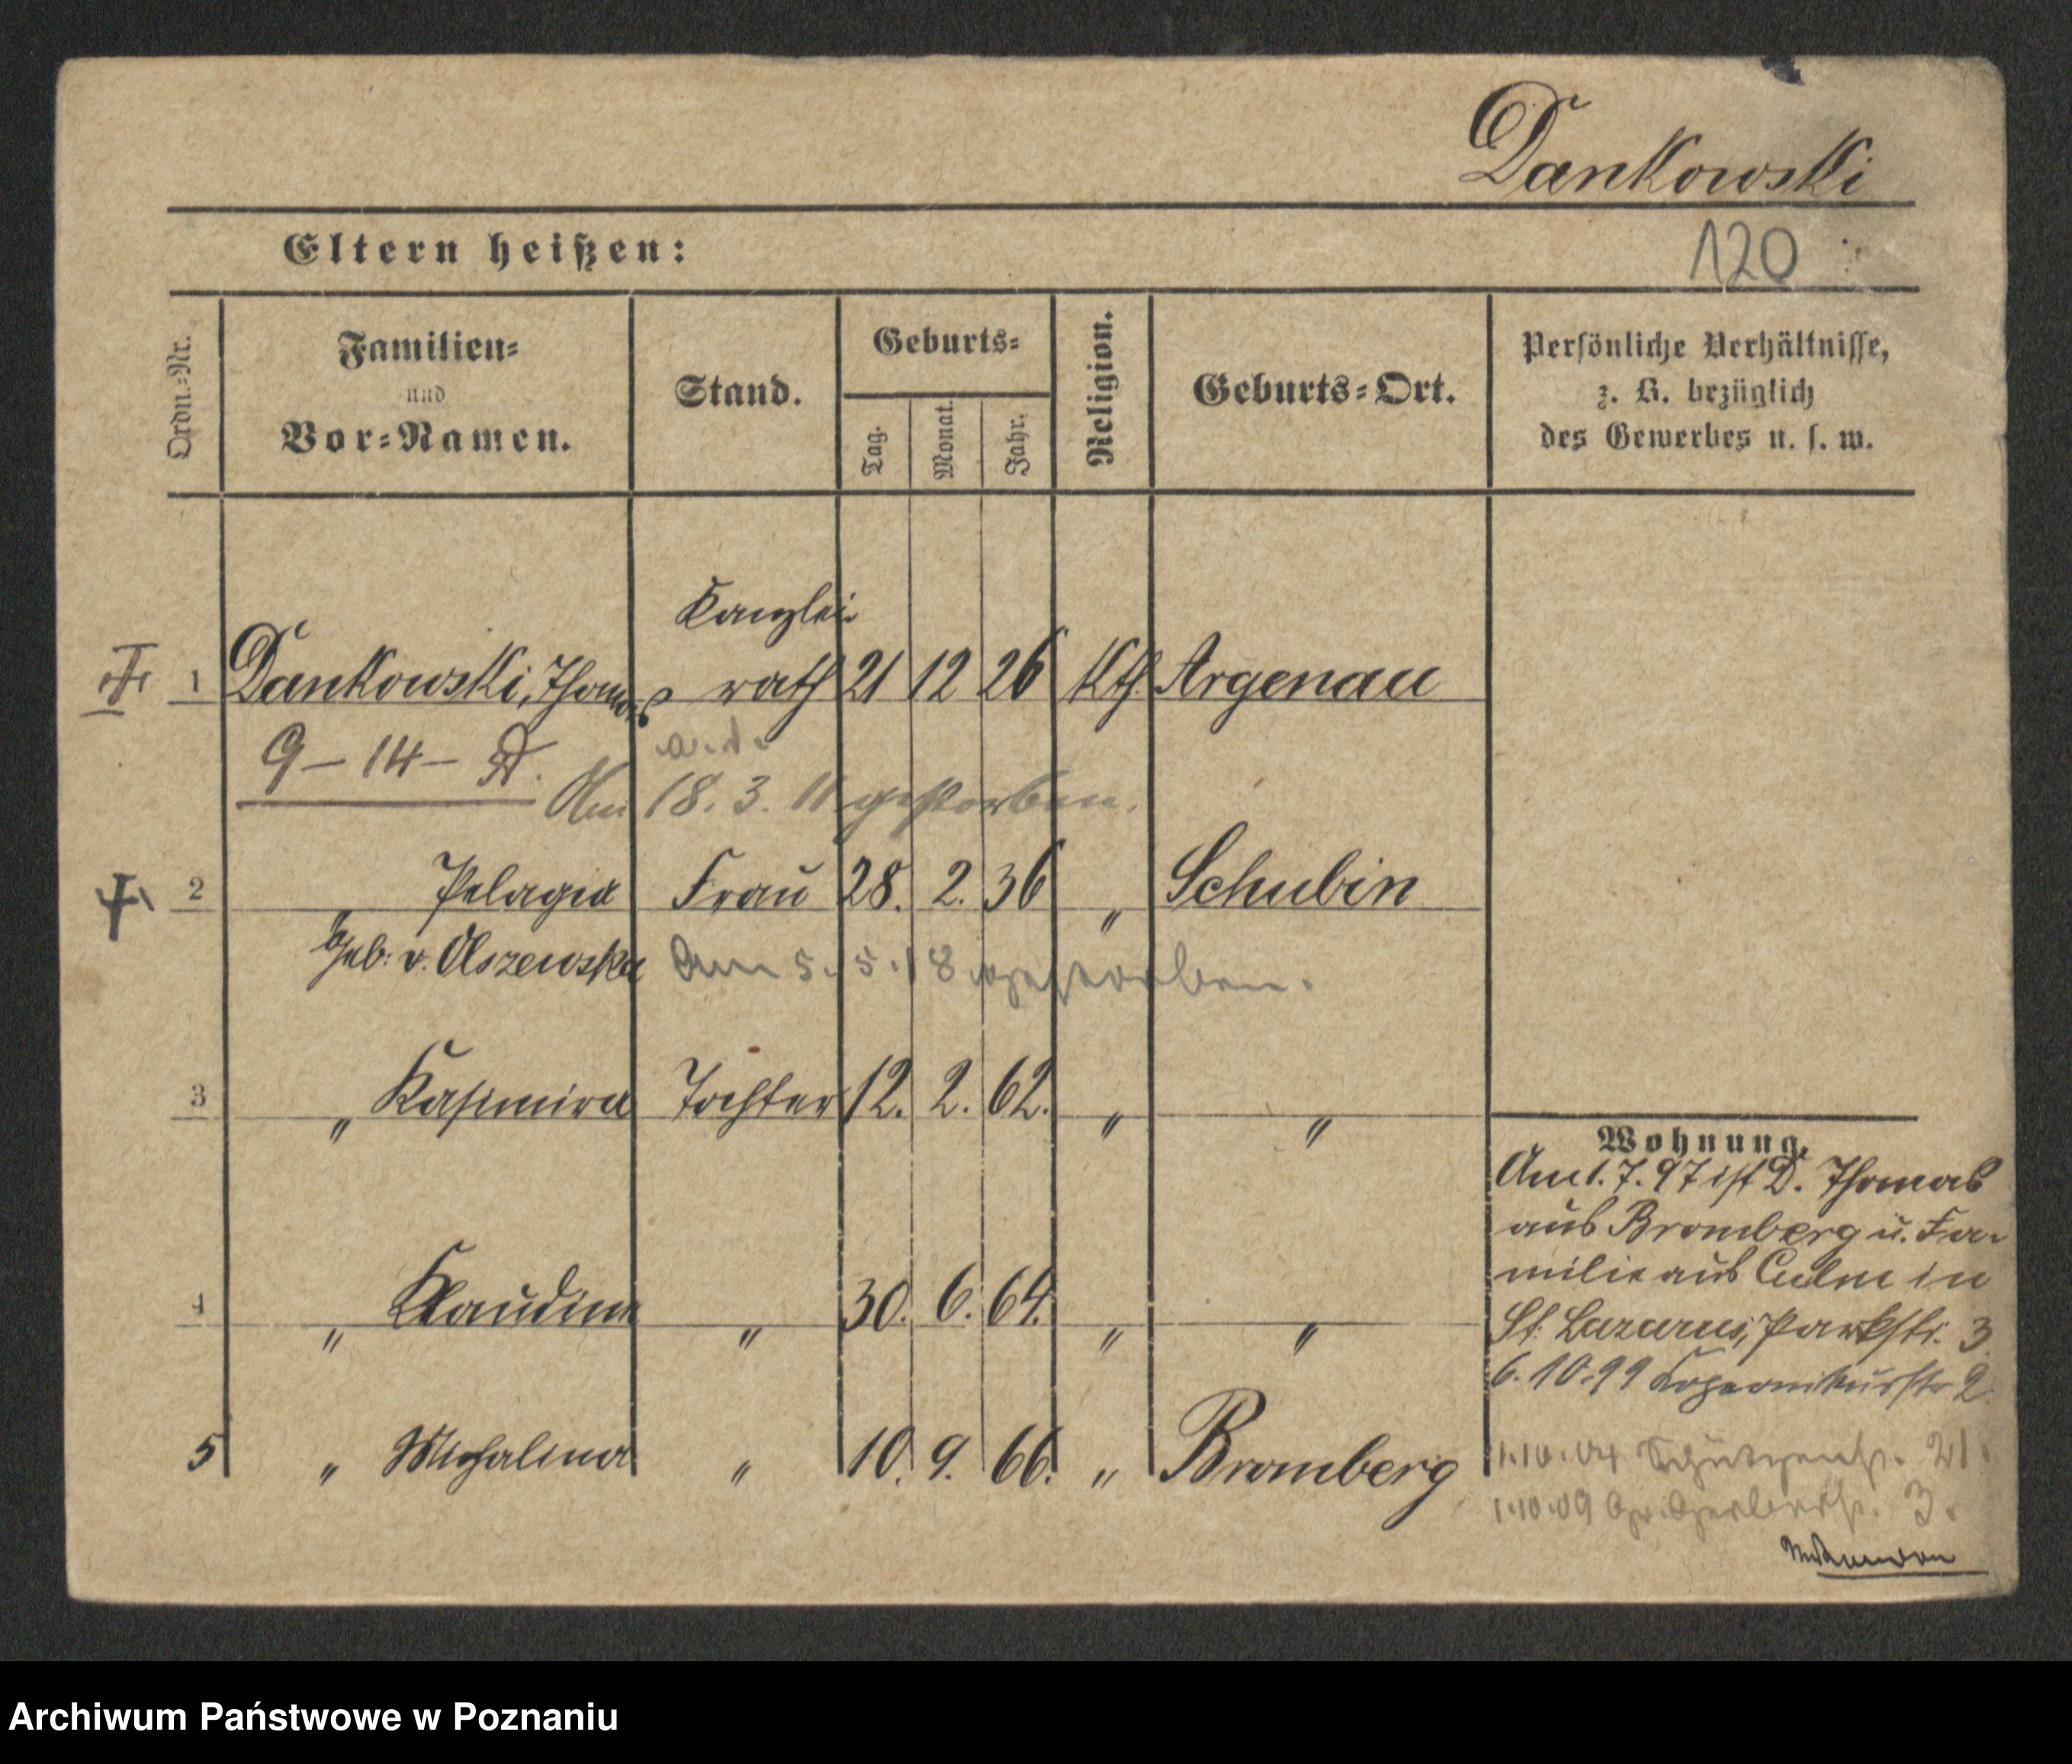 Dankowski
Eltern heißen:
120
Ordn.-Nr.
Familien-
und
Vor-Namen.
Stand.
Geburts-
Tag.
Monat.
Jahr.
Religion.
Geburts-Ort.
Persönliche Verhältnisse,
z. B. bezüglich
des Gewerbes u. s. w.
Kanzlei
1 Dankowski, Thomas rath 21 12 26 Kth. Argenau
a. d.
9 – 14 –
Am 18. 3. 11 gestorben.
2 " Pelagia Frau 28. 2. 36 " Schubin
geb: v. Olszewska Am 5. 5. 18 gestorben.
3 " Kasimira Tochter 12. 2. 62. " "
4 " Klaudina " 30. 6. 64. " "
5 " Michalina " 10. 9. 66. " Bromberg
Wohnung.
Am 1. 7. 97 ist D. Thomas
aus Bromberg u. Fa-
milie aus Culm in
St. Lazarus, Parkstr. 3
6. 10. 99 Kopernikusstr 2
1. 10. 04 Schützenstr. 21.
1. 10. 09 Gr. Gerberstr. 3.
Archiwum Państwowe w Poznaniu